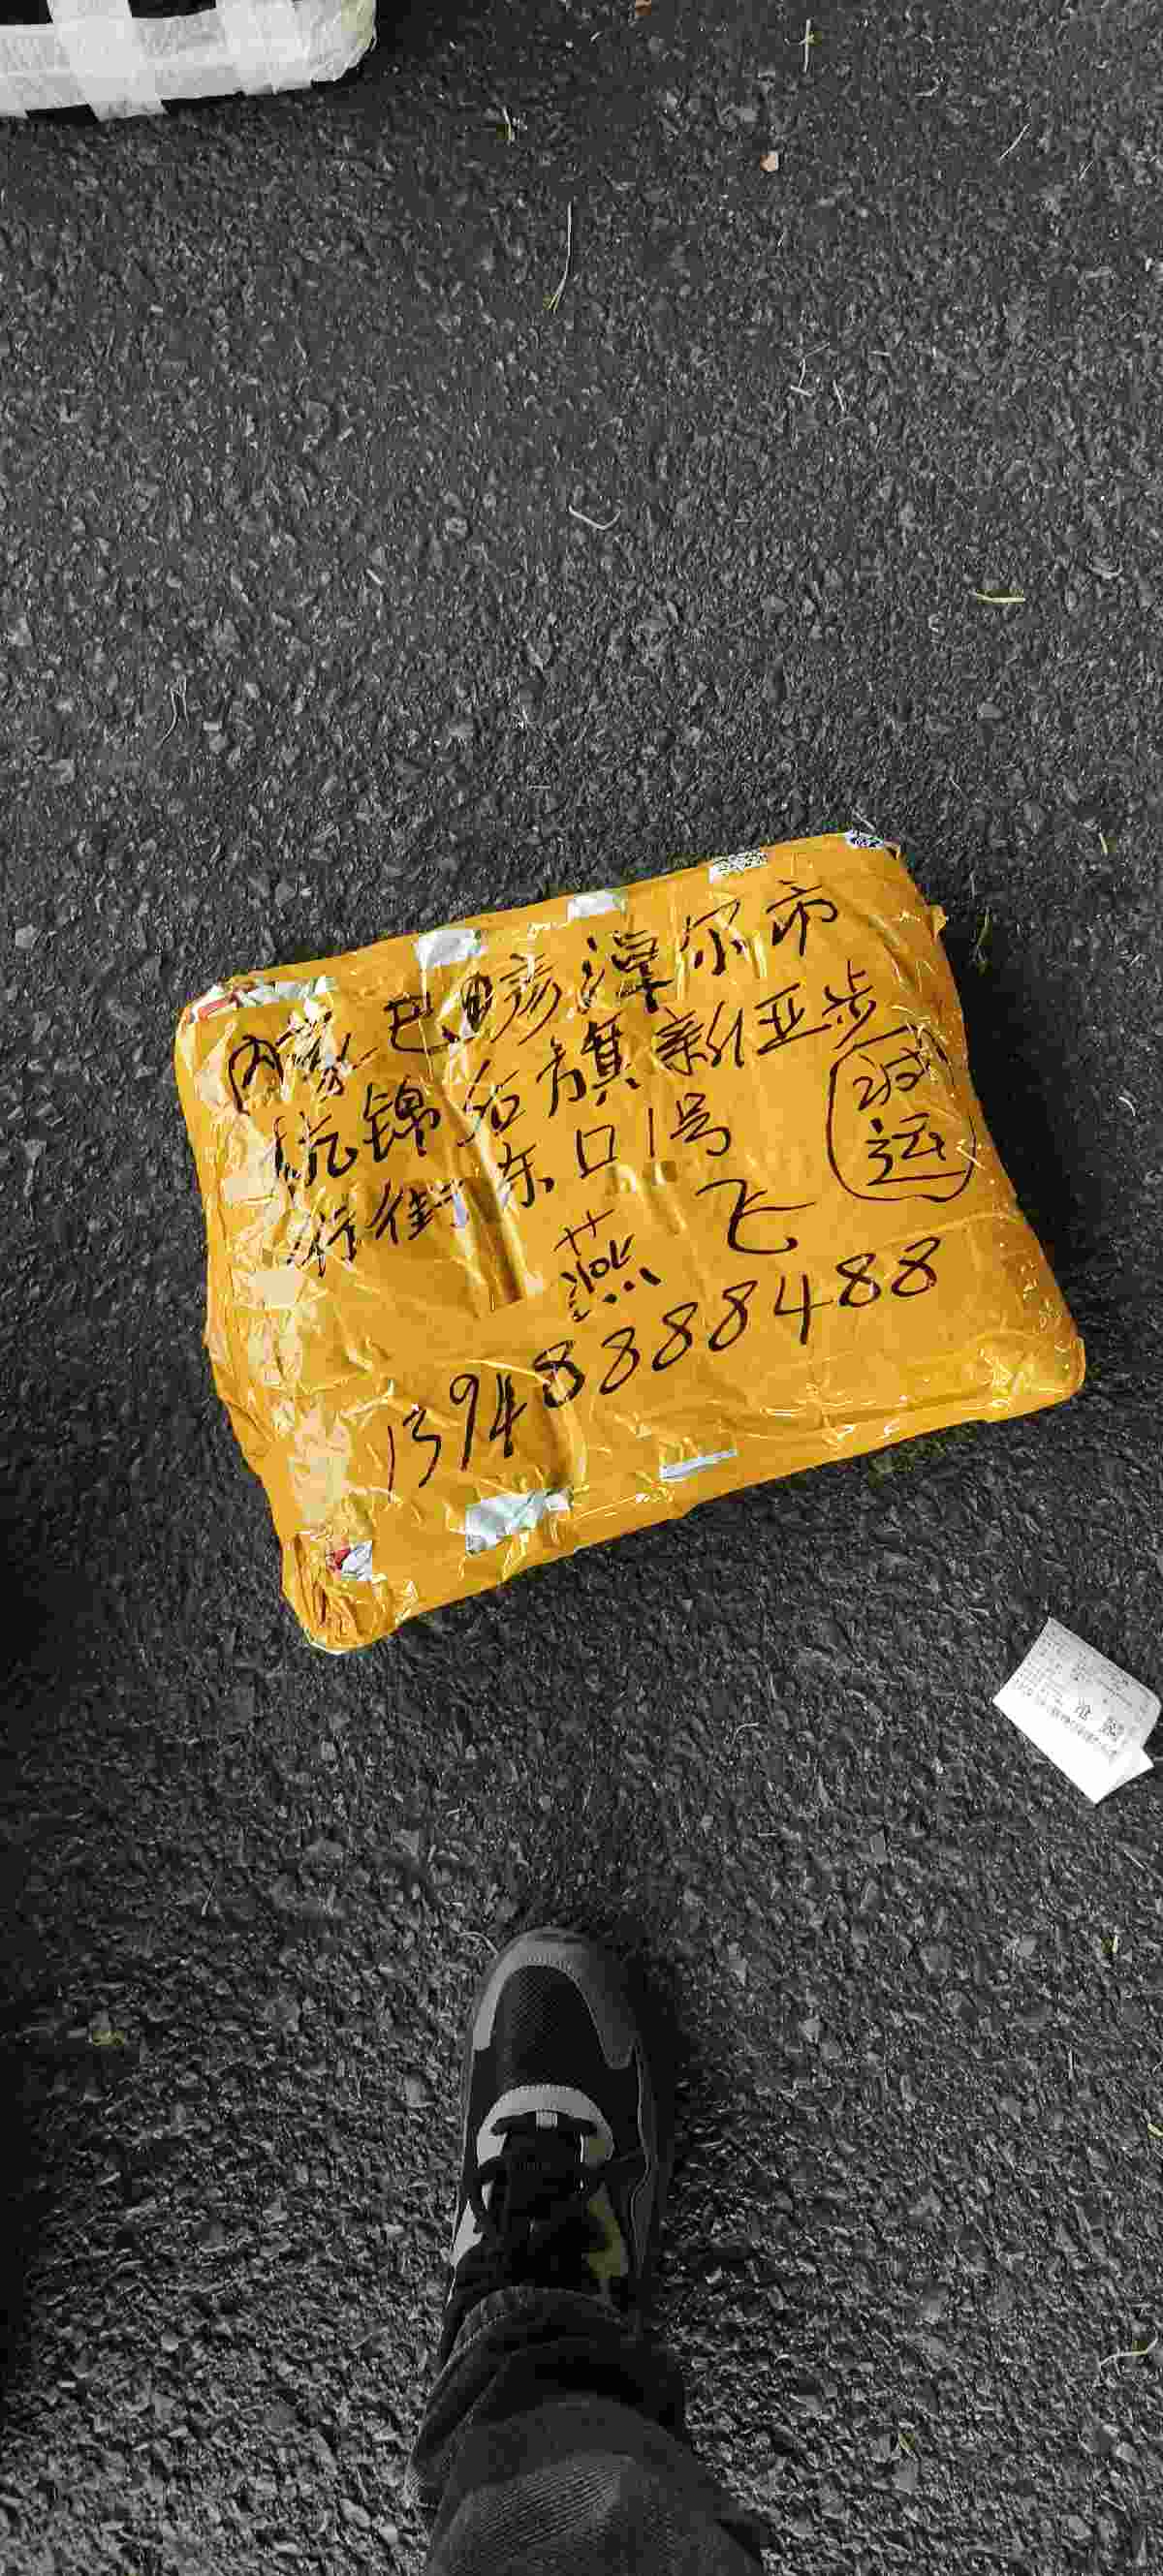 内蒙巴彦淖尔市
杭锦后旗新亚步
行街东口1号
燕飞
13948888488